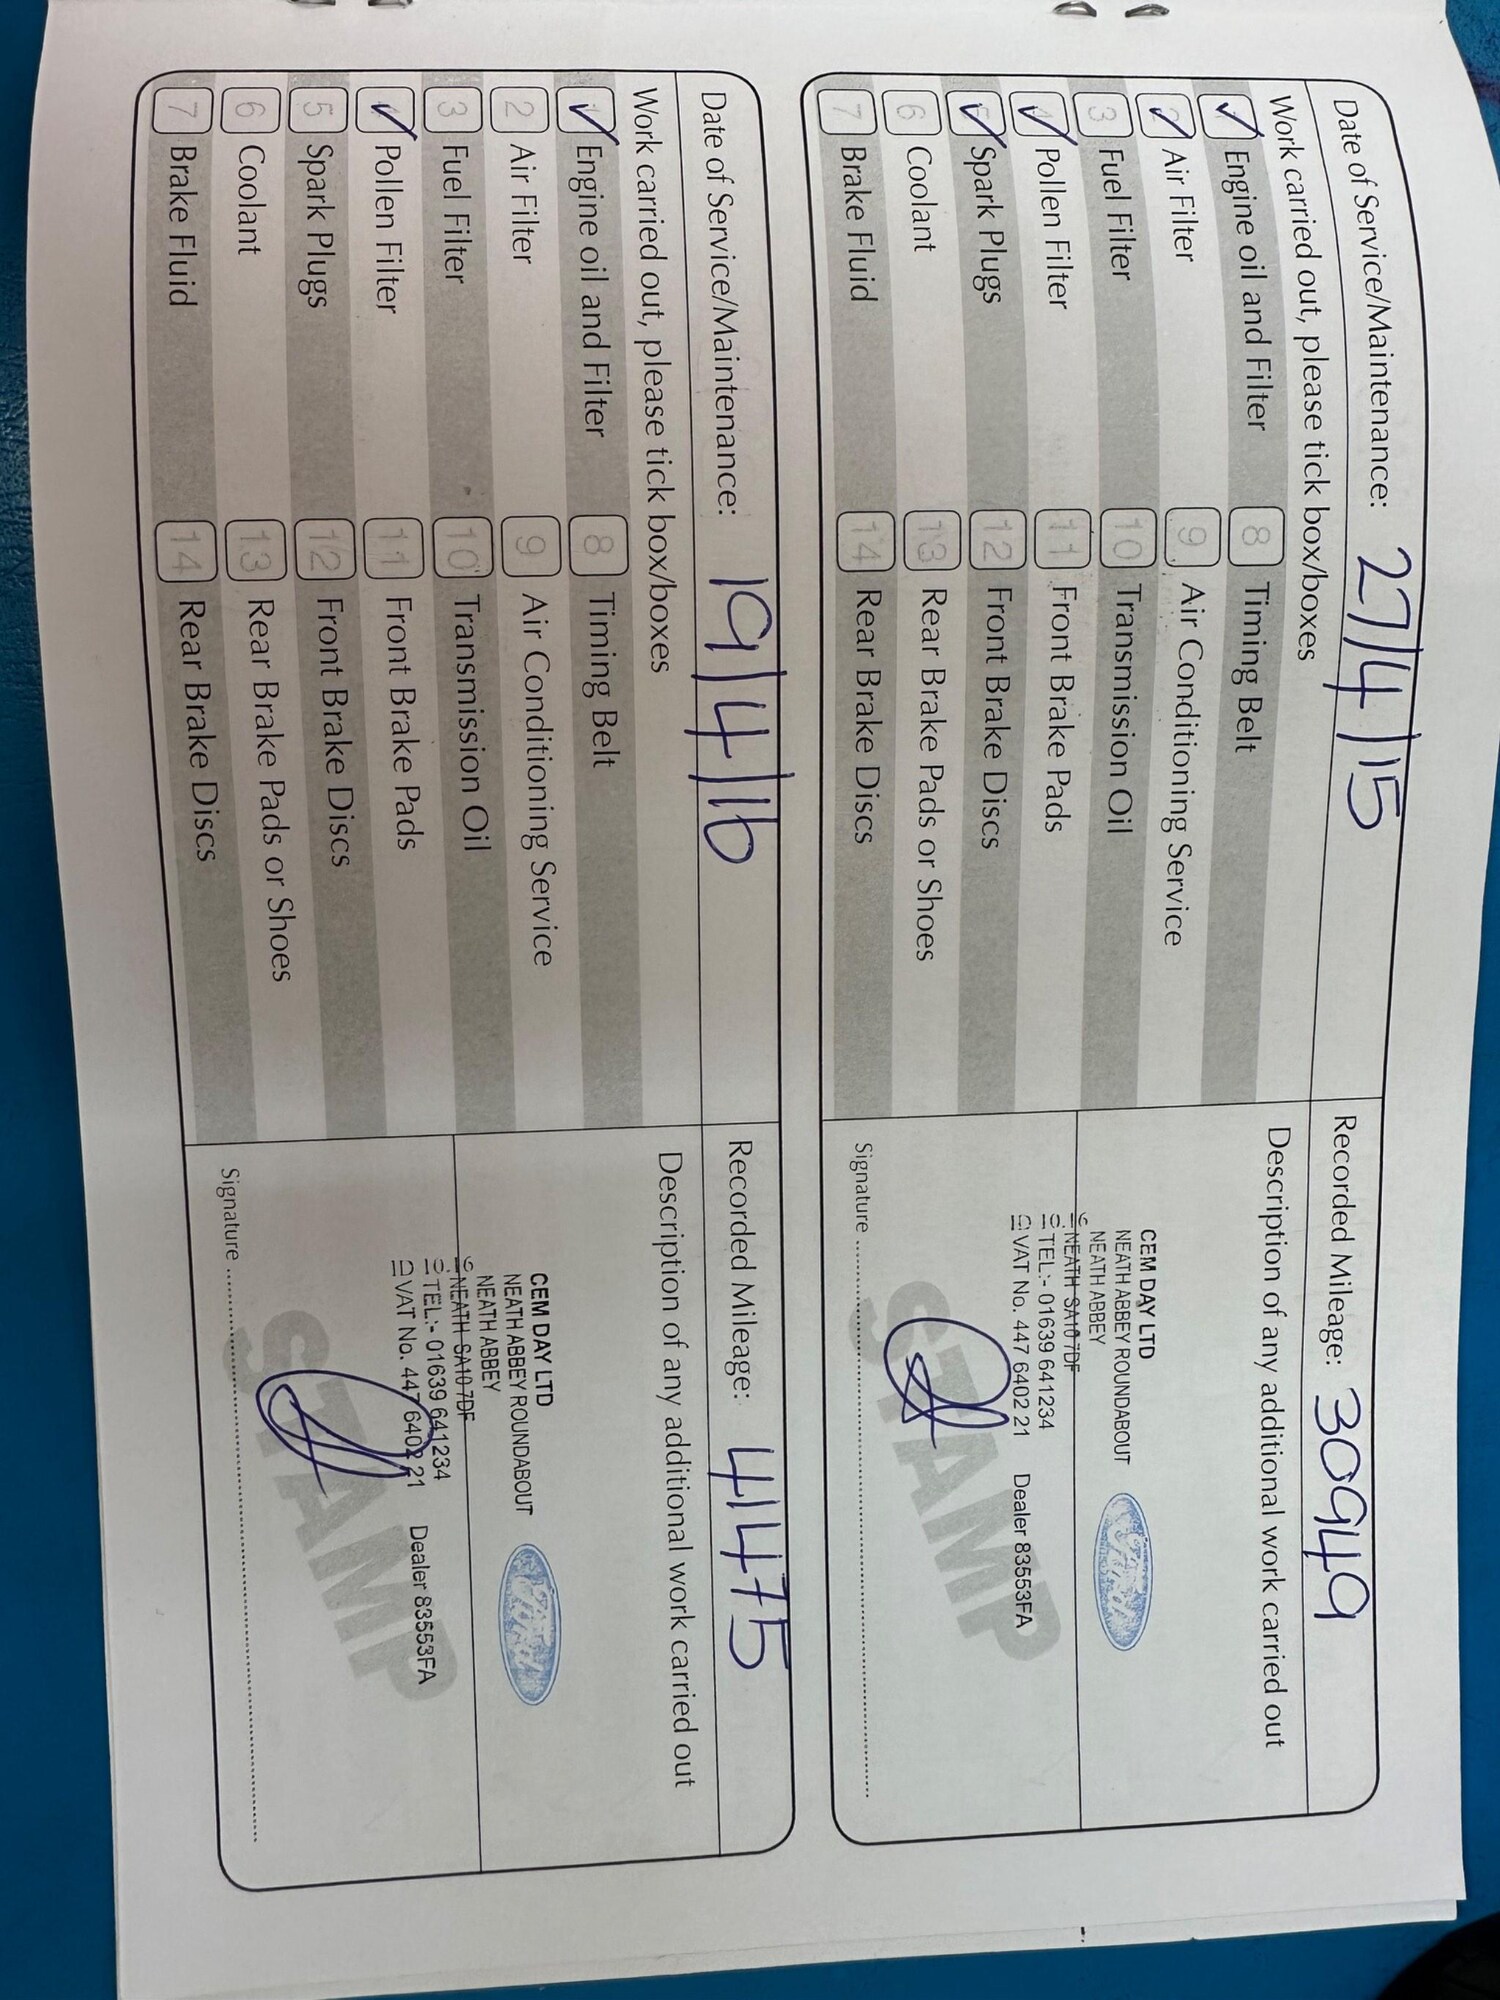 Date of Service/Maintenance: 27/4/15 Recorded Mileage: 30949
Work carried out, please tick box/boxes Description of any additional work carried out
Engine oil and Filter 8 Timing Belt
Air Filter 9 Air Conditioning Service
3 Fuel Filter 10 Transmission Oil
Pollen Filter 11 Front Brake Pads
Spark Plugs 12 Front Brake Discs
6 Coolant 13 Rear Brake Pads or Shoes
7 Brake Fluid 14 Rear Brake Discs
CEM DAY LTD
NEATH ABBEY ROUNDABOUT
NEATH ABBEY
NEATH SA10 7DF
TEL:- 01639 641234
VAT No. 447 6402 21 Dealer 83553FA
Ford
STAMP
Signature
Date of Service/Maintenance: 19/4/16 Recorded Mileage: 41475
Work carried out, please tick box/boxes Description of any additional work carried out
Engine oil and Filter 8 Timing Belt
2 Air Filter 9 Air Conditioning Service
3 Fuel Filter 10 Transmission Oil
Pollen Filter 11 Front Brake Pads
5 Spark Plugs 12 Front Brake Discs
6 Coolant 13 Rear Brake Pads or Shoes
7 Brake Fluid 14 Rear Brake Discs
CEM DAY LTD
NEATH ABBEY ROUNDABOUT
NEATH ABBEY
NEATH SA10 7DF
TEL:- 01639 641234
VAT No. 447 6402 21 Dealer 83553FA
Ford
STAMP
Signature